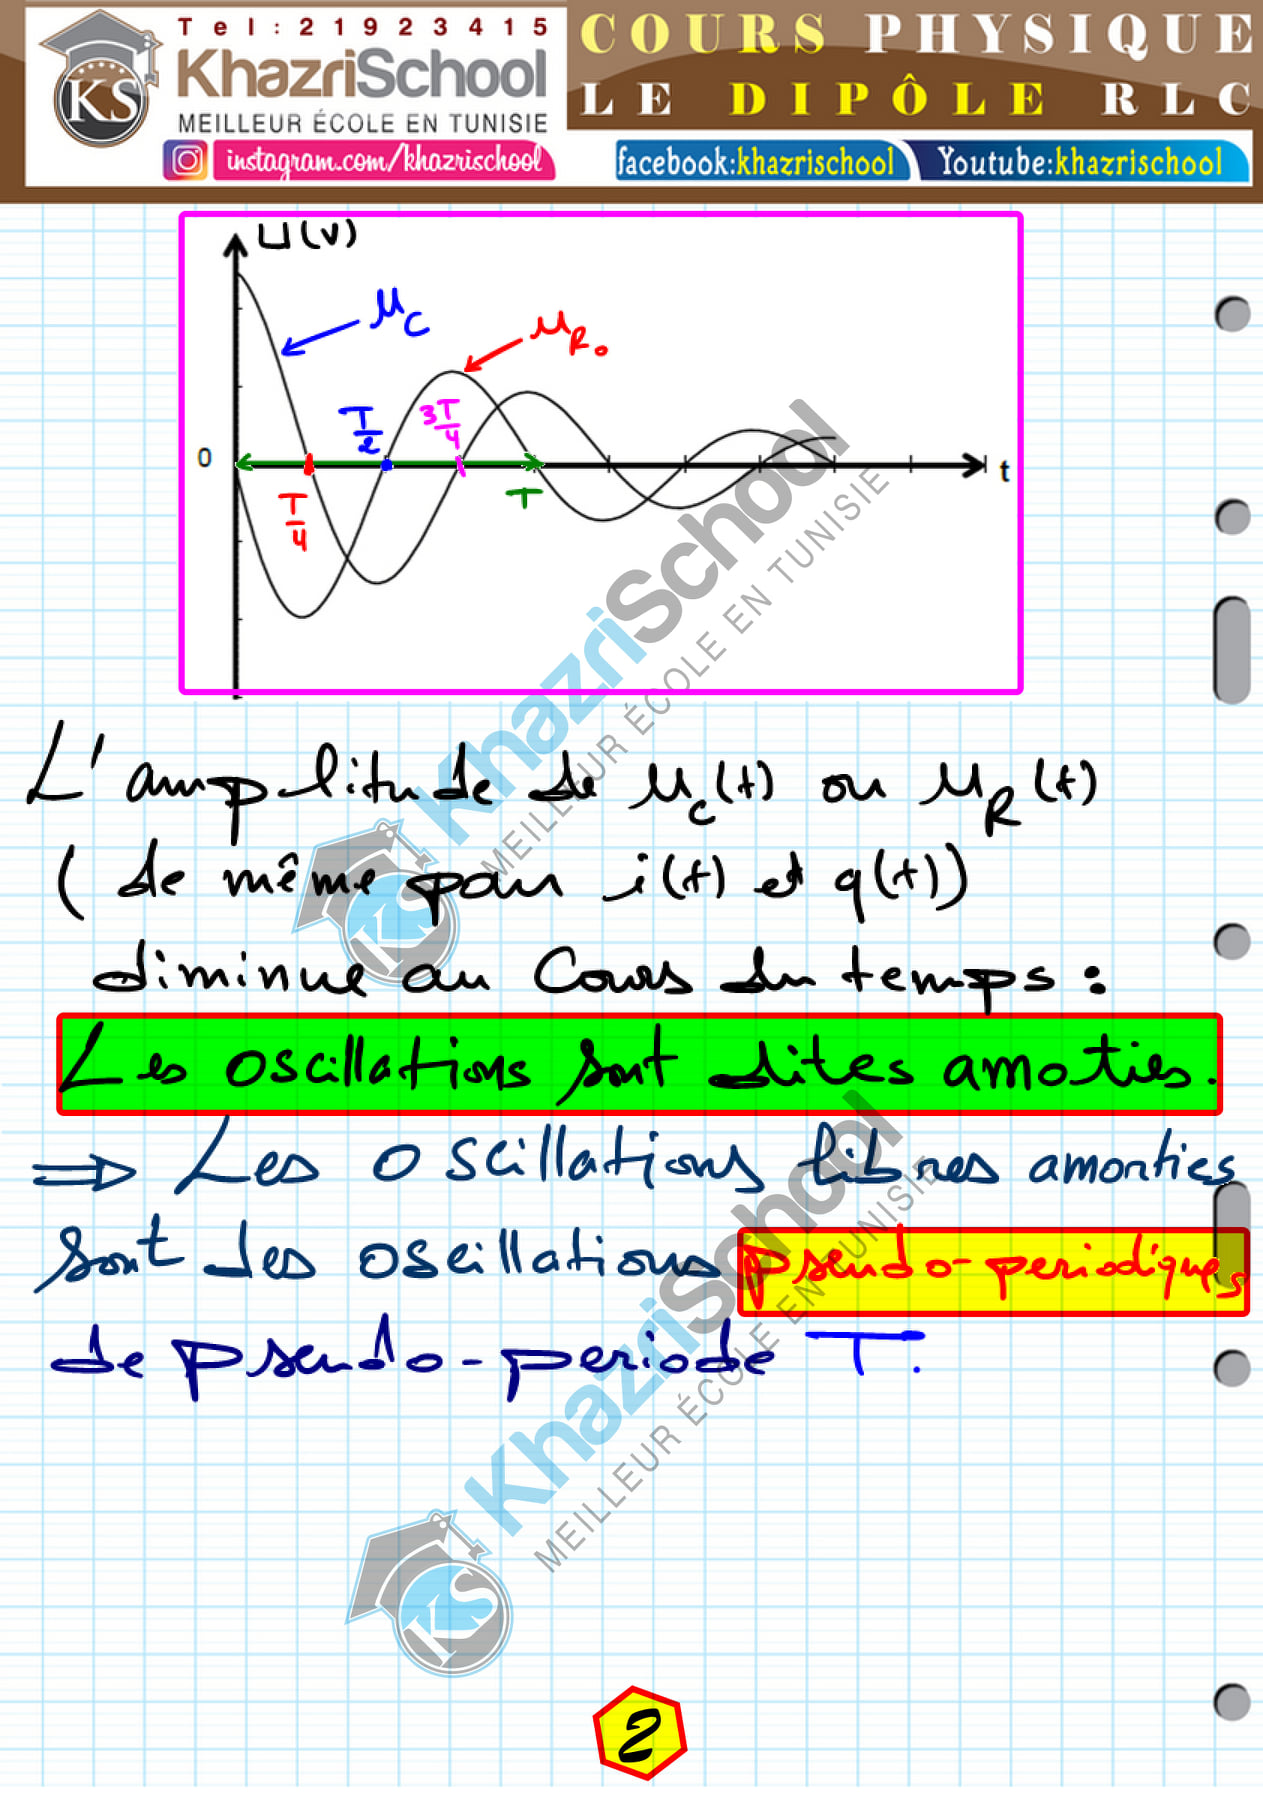 Tel: 21923415
KhazriSchool
MEILLEUR ÉCOLE EN TUNISIE
KS
instagram.com/khazrischool
COURS PHYSIQUE
LE DIPÔLE RLC
facebook:khazrischool
Youtube:khazrischool
U(V)
u_C
u_R0
0
T/4
T/2
3T/4
T
t
L'amplitude de u_C(t) ou u_R(t)
(de même pour i(t) et q(t))
diminue au cours du temps :
Les oscillations sont dites amoties.
⇒ Les oscillations libres amorties
sont des oscillations pseudo-periodiques
de pseudo-periode T.
KhazriSchool
MEILLEUR ÉCOLE EN TUNISIE
KS
KhazriSchool
MEILLEUR ÉCOLE EN TUNISIE
KS
2